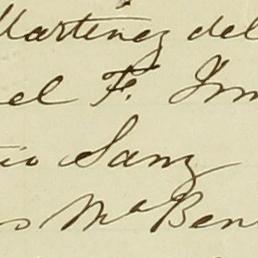 Martinez del
el F. 
io Sanz
s Mª Ben